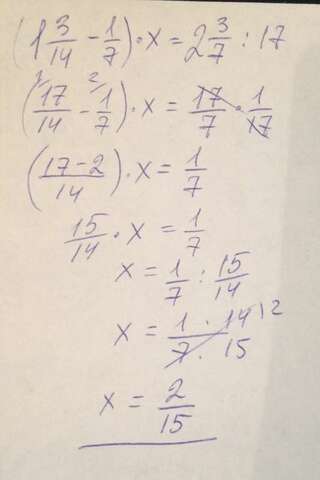 (1 3/14 - 1/7) · x = 2 3/7 : 17
(17/14 - 1/7) · x = 17/7 · 1/17
((17-2)/14) · x = 1/7
15/14 · x = 1/7
x = 1/7 : 15/14
x = (1 · 14)/(7 · 15) 2
x = 2/15